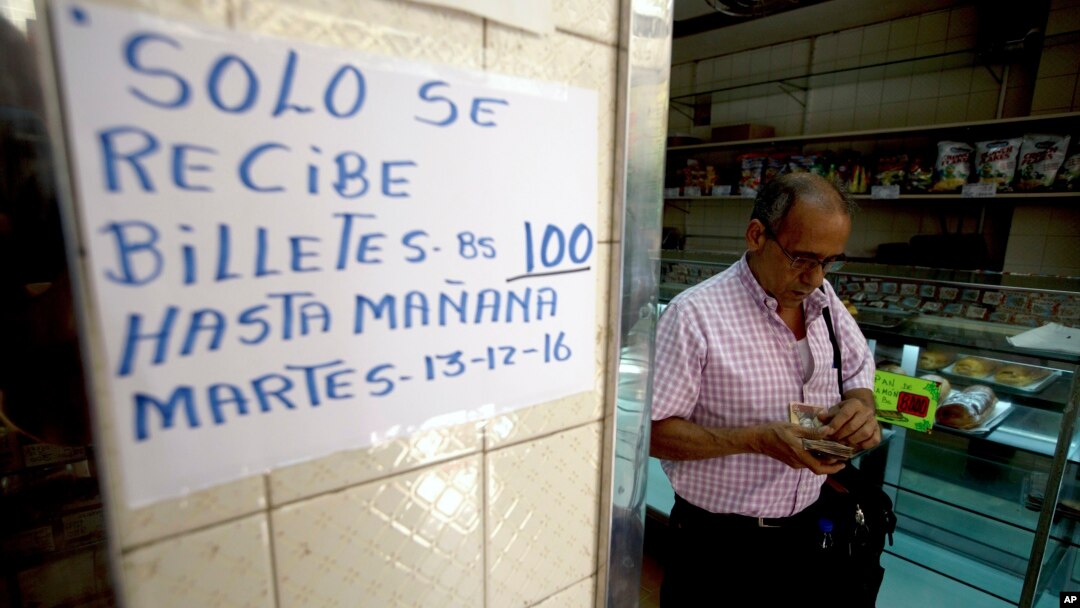 SOLO SE
RECIBE
BILLETES- BS 100
HASTA MAÑANA
MARTES- 13-12-16
PAN DE
JAMON
Bs
AP